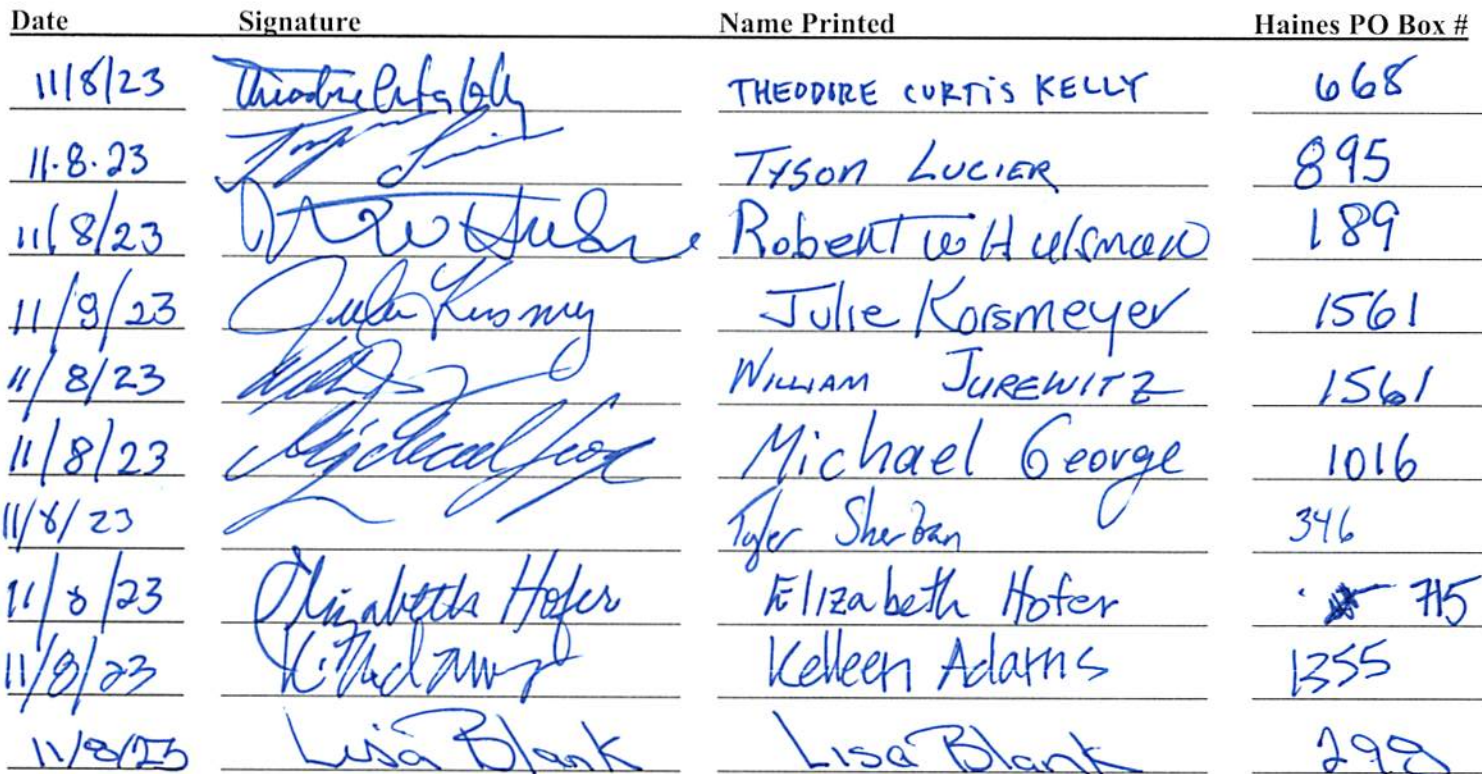 Date Signature Name Printed Haines PO Box #
11/8/23 THEODORE CURTIS KELLY 668
11.8.23 TYSON LUCIER 895
11/8/23 Robert W Hulsman 189
11/9/23 Julie Korsmeyer 1561
11/8/23 WILLIAM JUREWITZ 1561
11/8/23 Michael George 1016
11/8/23 Tyler Sherban 346
11/8/23 Elizabeth Hofer Elizabeth Hofer 715
11/8/23 Kelleen Adams 1355
11/8/23 Lisa Blank Lisa Blank 299